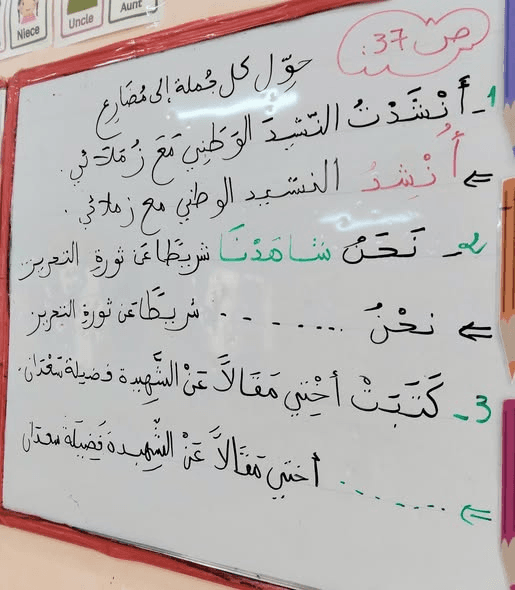 Niece
Uncle
Aunt
ص 37:
حوّل كل جملة إلى مُضَارِع
1- أَنْشَدْتُ النّشِيدَ الوَطَنِي مَعَ زُمَلَائِي.
⇐ أُنْشِدُ النشيد الوطني مع زملائي.
2- نَحْنُ شَاهَدْنَا شَرِيطًا عَن ثورةِ التحرير
⇐ نحْنُ ........ شريطًا عَن ثورةِ التحرير
3- كَتَبَتْ أُخْتِي مَقَالاً عَنْ الشَّهِيدة فضيلة سَعْدَان.
⇐ ........ أختي مَقَالاً عَنْ الشَّهِيدة فَضِيلَة سعدان